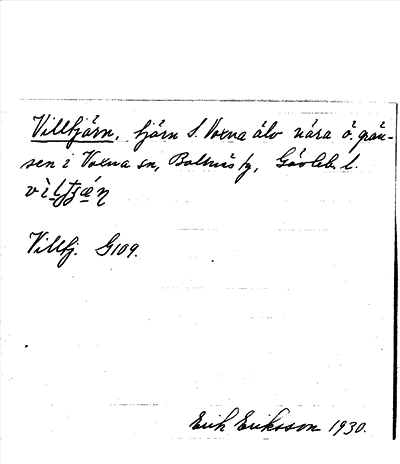 Villtjärn, tjärn S. Voxna älv nära ö. grän-
sen i Voxna sn, Bollnäs tg, Gävleb. l.
Villtj. G109.
Erik Eriksson 1930.